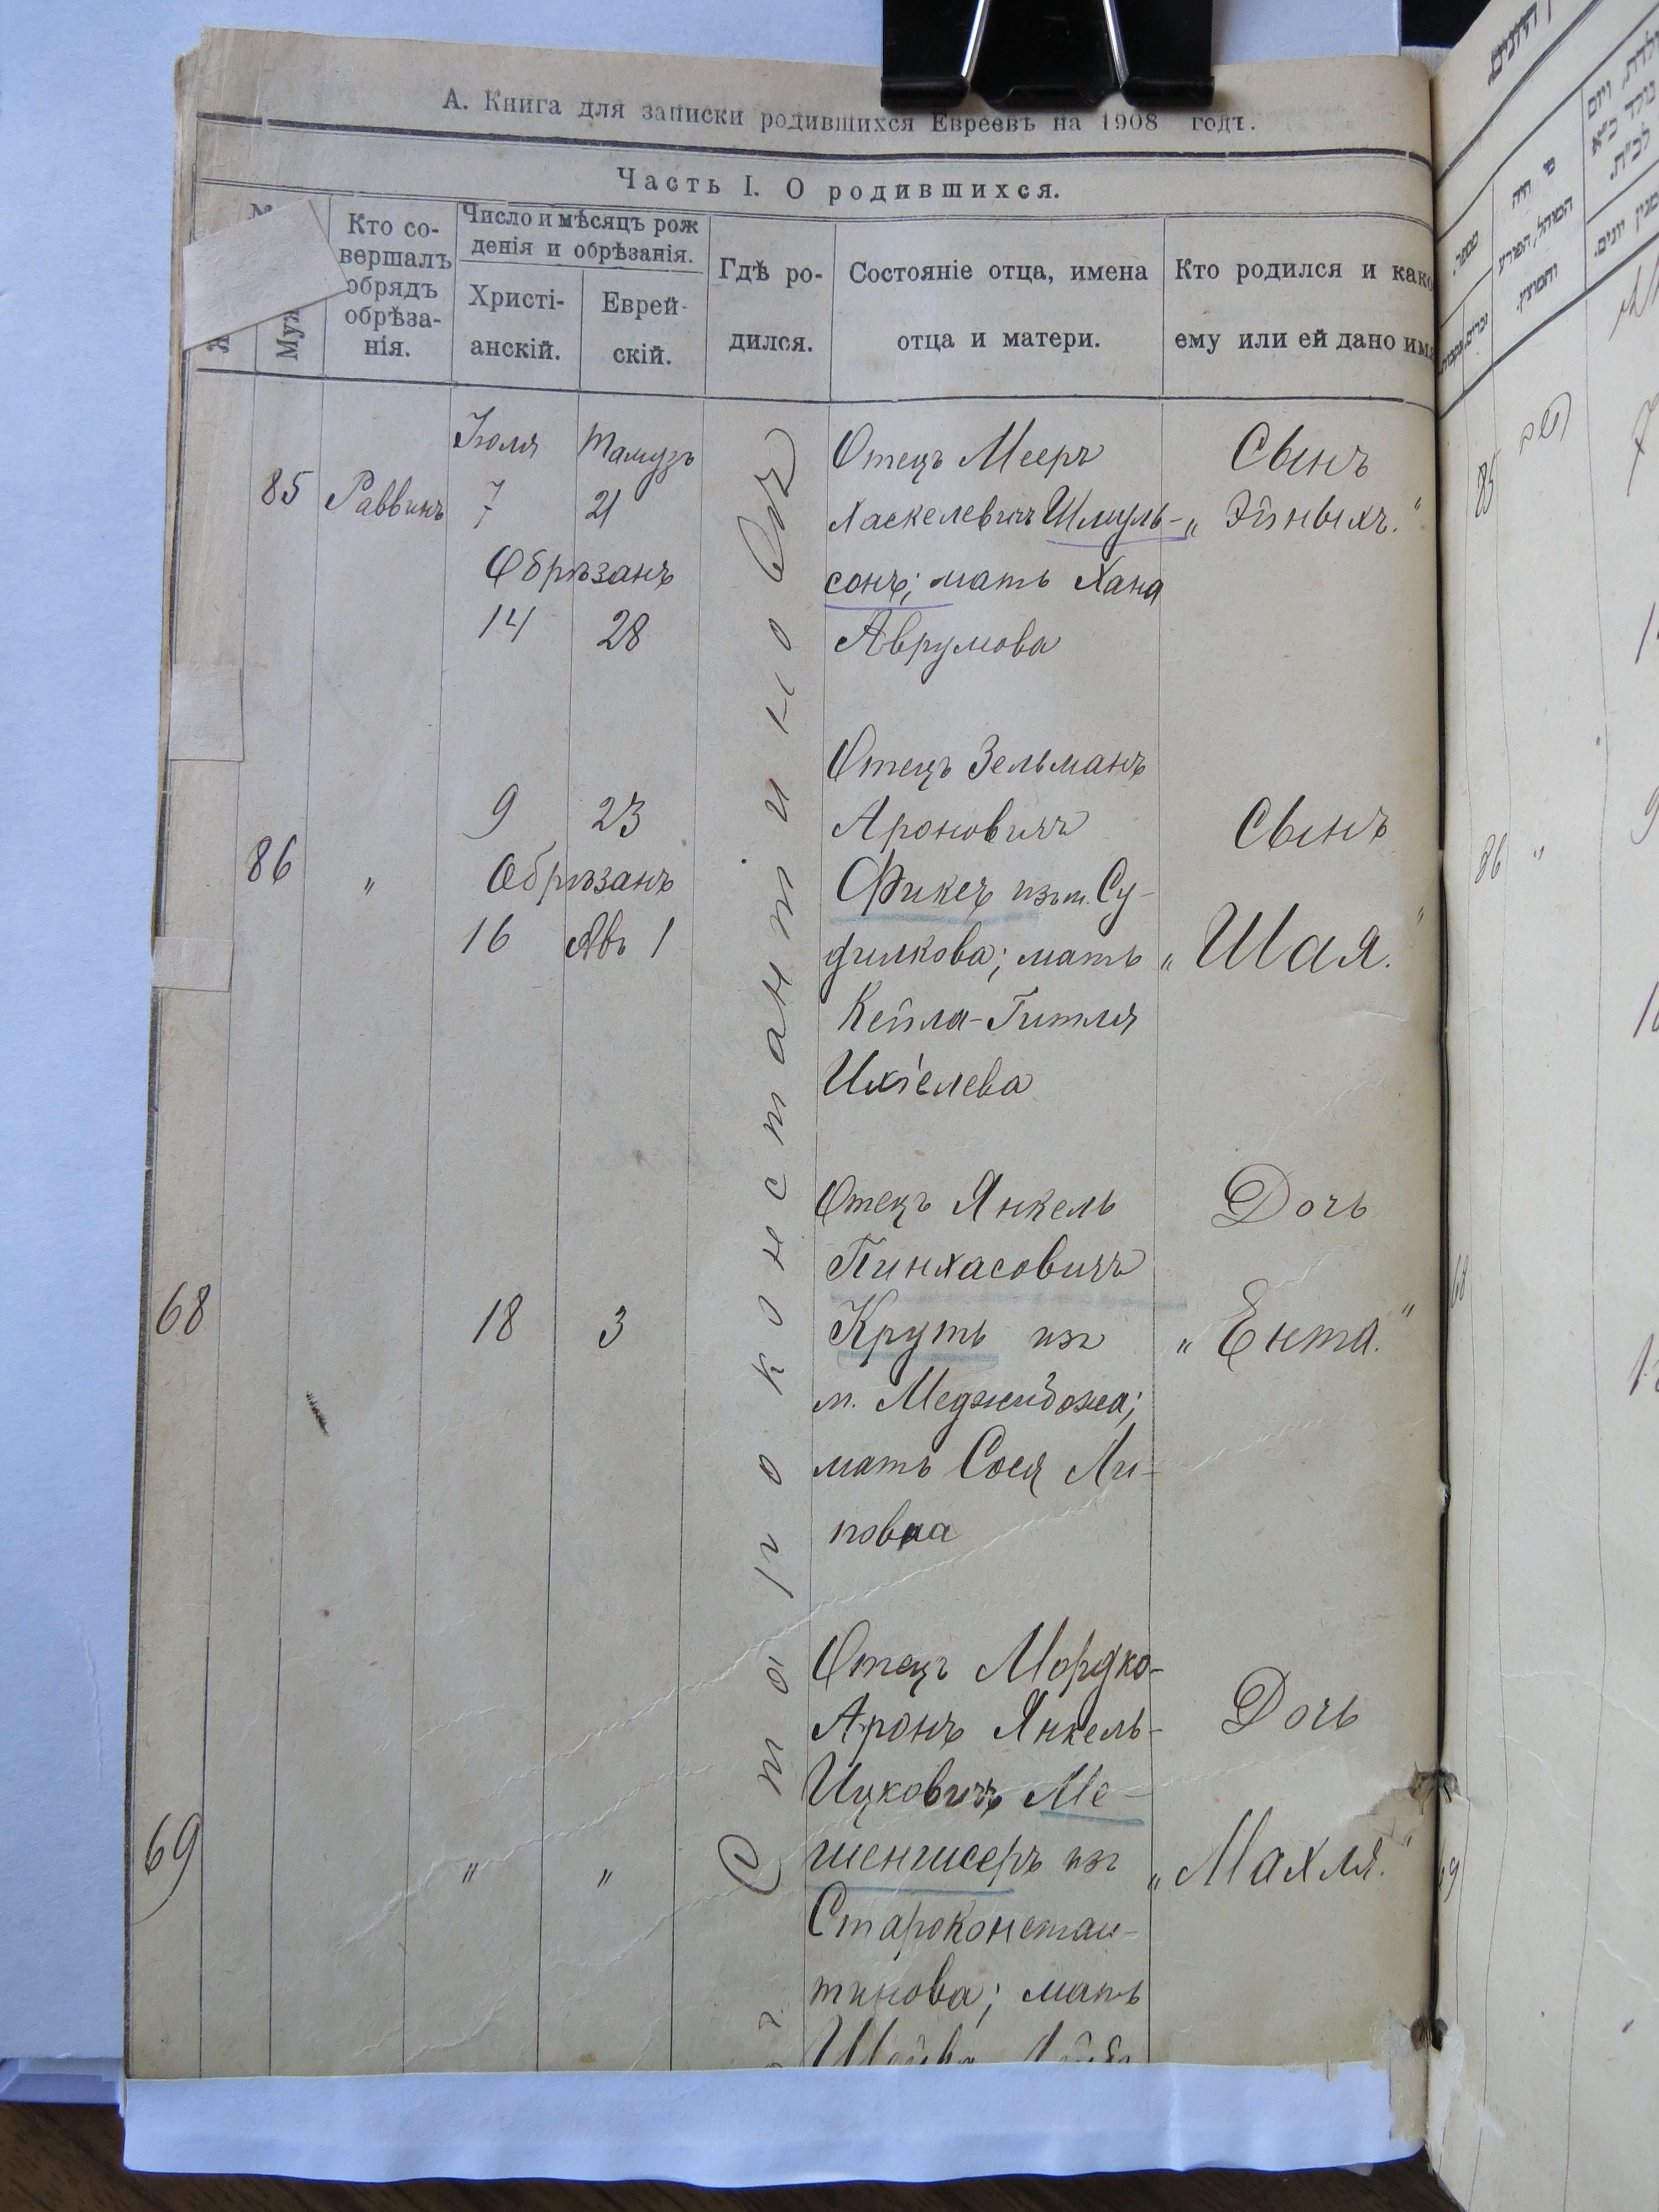 А. Книга для записки родившихся Евреевъ на 1908 годъ.
Часть I. О родившихся.
Кто со-
вершалъ
обрядъ
обрѣза-
нія.
Число и мѣсяцъ рож
денія и обрѣзанія.
Христі-
анскій.
Еврей-
скій.
Гдѣ ро-
дился.
Состояніе отца, имена
отца и матери.
Кто родился и како
ему или ей дано имя
Муж
Г. Староконстантиновъ
85 Раввинъ
Іюля 7 Тамузъ 21
Обрѣзанъ
14 28
Отецъ Мееръ
Хаскелевичъ Шмуль-
сонъ; мать Хана
Аврумова
Сынъ
„Эйныхъ."
86 „
9 23
Обрѣзанъ
16 Авъ 1
Отецъ Зельманъ
Ароновичъ
Фиксъ изъ м. Су-
дилкова; мать
Кейла-Гитля
Ихіелева
Сынъ
„Шая."
68 18 3
Отецъ Янкель
Пинхасовичъ
Круть изъ
м. Меджибожа;
мать Сося Ли-
пова
Дочь
„Ента."
69 „ „
Отецъ Мордко-
Аронъ Янкель-
Ицковичъ Ме-
шенгисеръ изъ
Староконстан-
тинова; мать
Дочь
„Махля."
85
86 „
68
69